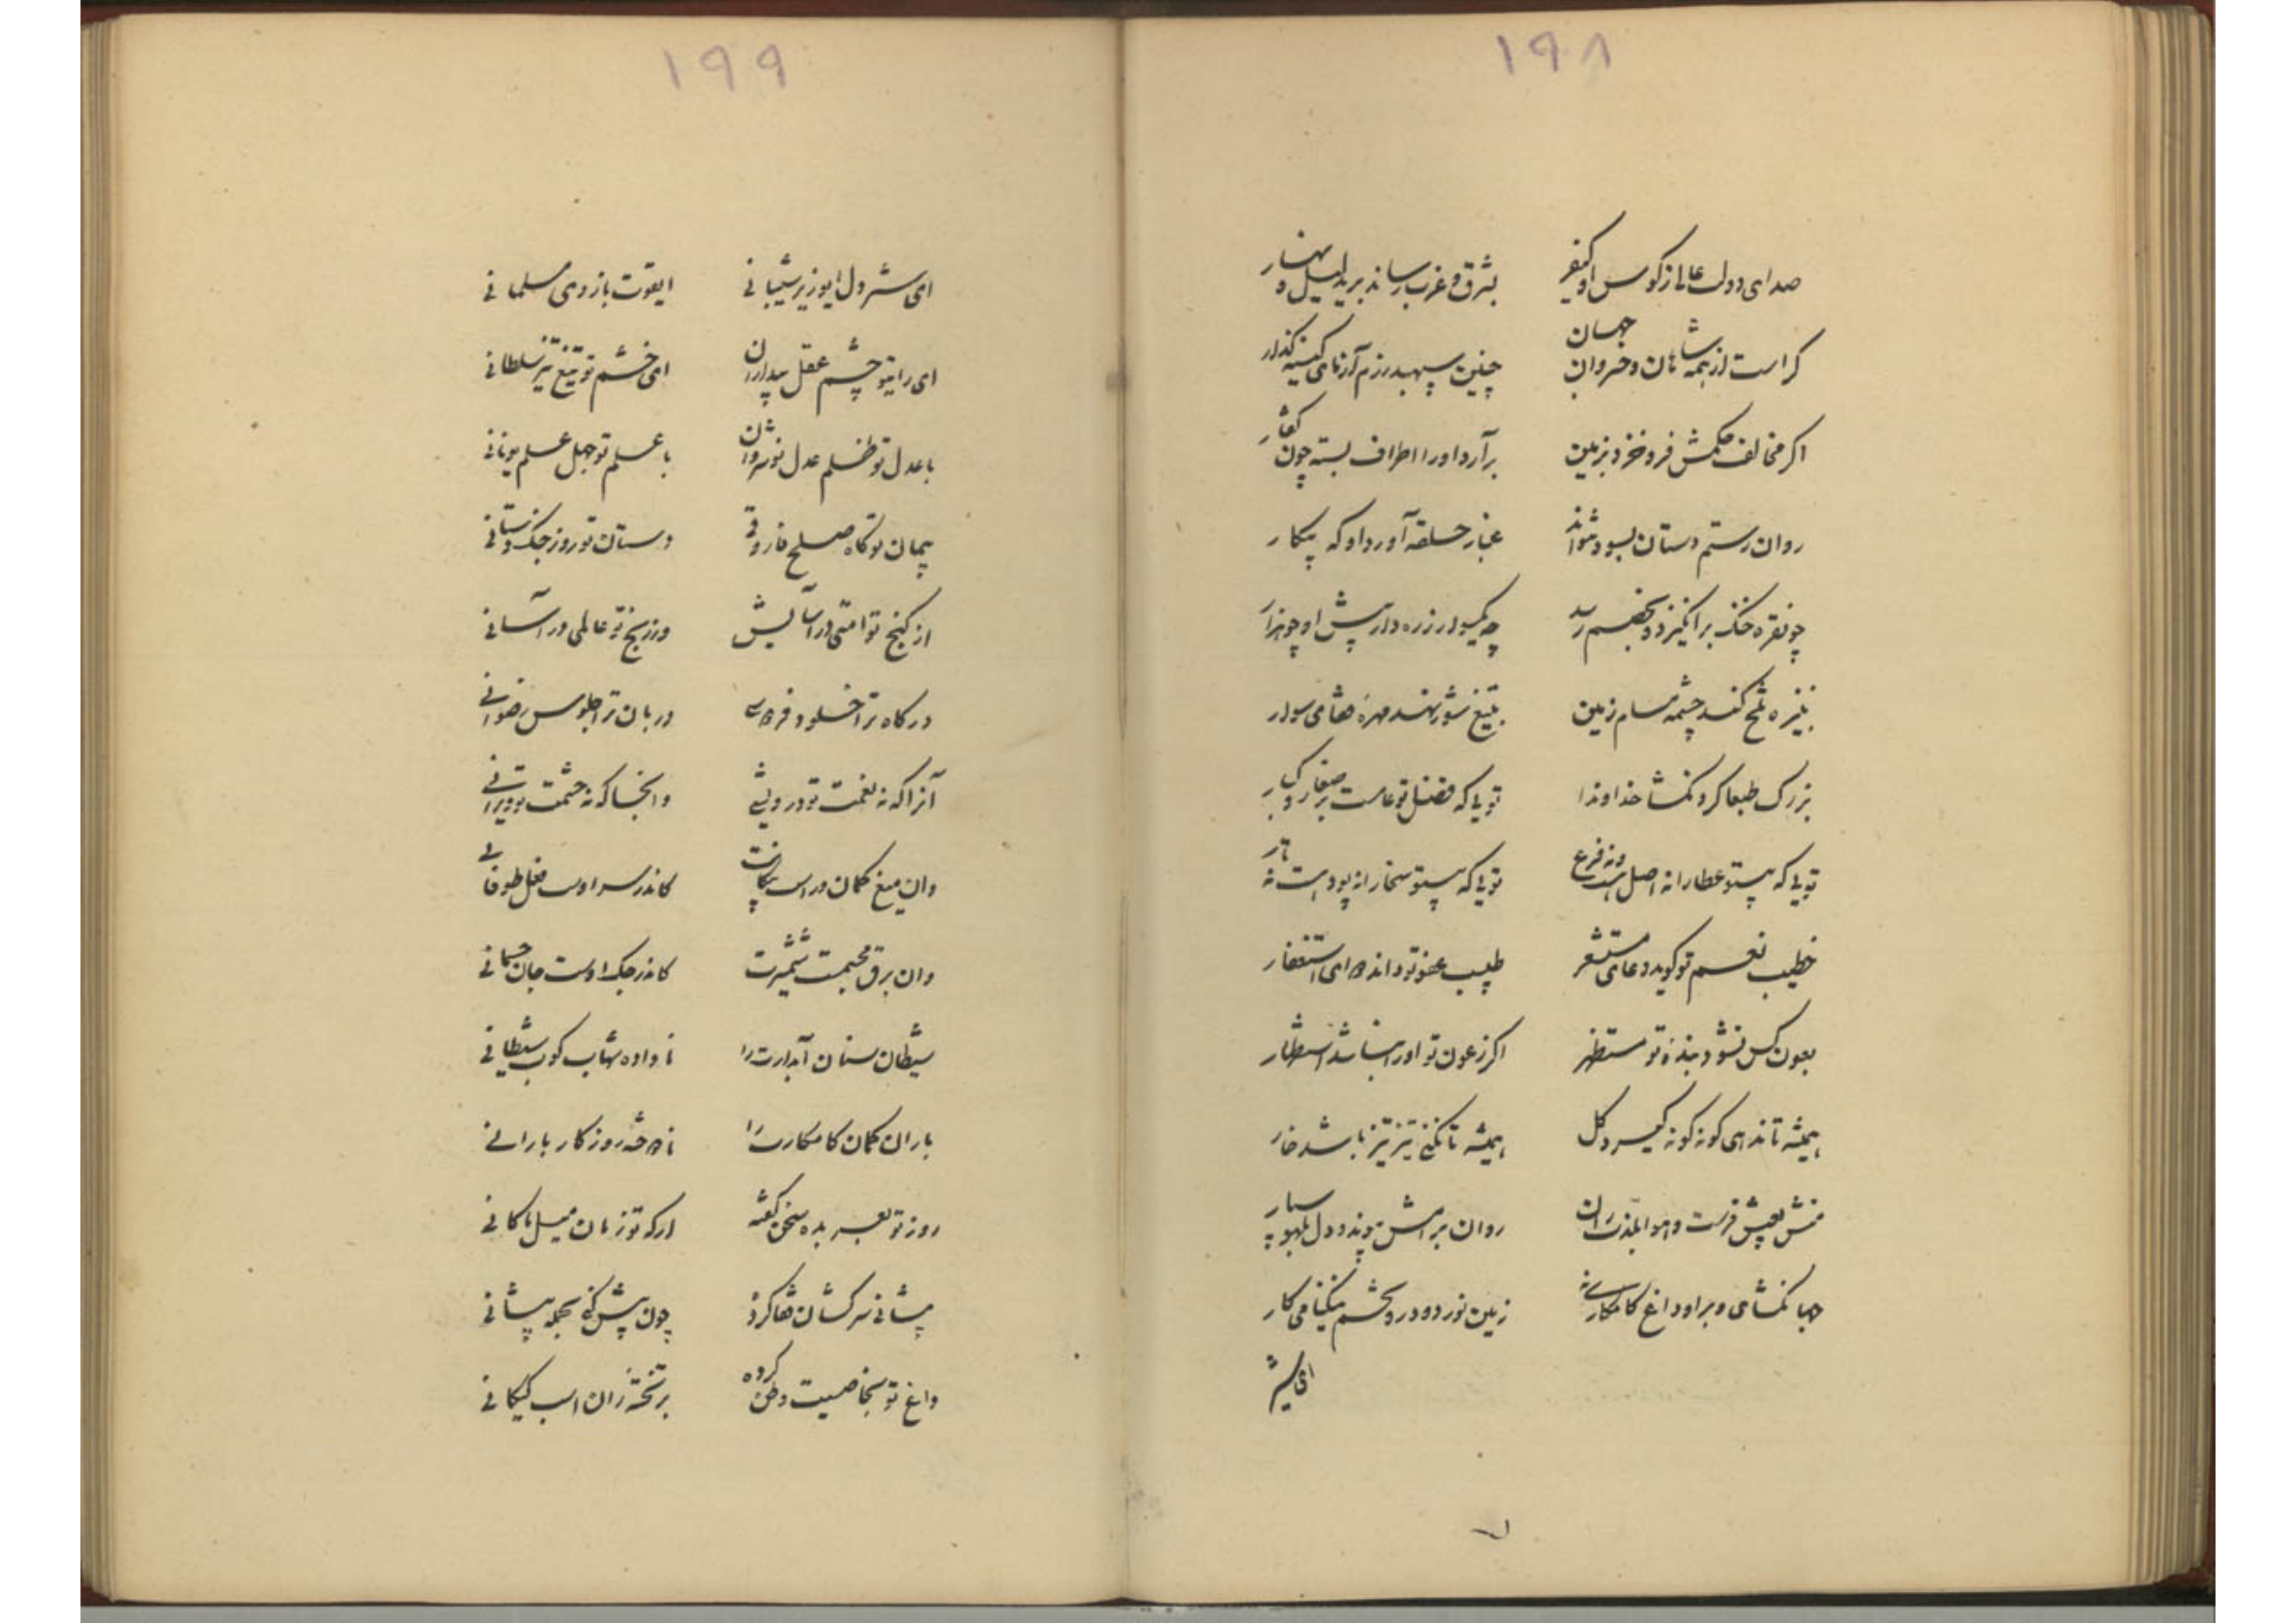 ۱۹۸
صدای دولت عالی ز کوس او کیفر بشرق و غرب رساند برید لیل و نهار
کراست از همه شاهان و خسروان جهان چنین سپهبد رزم آزمای کینه گذار
اگر مخالف حکمش فرو خزد بزمین برآرد او را اطراف بسته چون کفتار
روان رستم دستان بسود نتواند عنبار حلقه آورد او که پیکار
چو نقره خنگ برانگیزد و بخصم رسد چه یکسوار زره دار پیش او چو هزار
بنیزه تلخ کند چشمه مسام زمین بتیغ شور نهد مهره های سوار
بزرگ طبعا گردنکشا خداوندا تویی که فضل تو عامست بر صغار و کبار
تویی که بیتو عطا را نه اصل بیند و نه فرع تویی که بیتو سخا را نه پود است نه تار
خطیب نعم تو گوید دعای مستشعر طبیب عفو تو داند دوای استغفار
بعون کس نشود بنده تو مستظهر اگر ز عون تو او را نباشد استظهار
همیشه تا ندهی گونه گونه گیرد گل همیشه تا نکنی تیز تیز باشد خار
منش بعیش فرست و هوا بلذت ران روان برامش پوند و دل بلهو سپار
جهان گشای و بر او داغ کامکاری نه زمین نورد و در و تخم نیکنامی کار
ای شیر
۱۹۹
ای شیر دل ایوزیر شیبانی ایقوت بازوی مسلمانی
ای رای تو چشم عقل بیداران ای خشم تو تیغ تیز سلطانی
با عدل تو ظلم عدل نوشروان با علم تو جهل علم یونانی
پیمان تو گاه صلح فاروقی دستان تو روز جنگ دستانی
از گنج تو امتی در آسایش وز رنج تو عالمی در آسانی
درگاه ترا خلود فردوسی دربان ترا جلوس رضوانی
آنرا که نه نعمت تو درویشی وانجا که نه حشمت تو ویرانی
وان میغ کمان در است پیکانت کاندر سر اوست فعل طوفانی
وان برق مجسمت شمشیرت کاندر جنگ اوست جان جسمانی
شیطان سنان آبدارت را نا داده شهاب کوب شیطانی
باران کمان کامکارت را نادوخته روزگار بارانی
پیشانی سرکشان قفا گردد چون پیش کنی بحمله پیشانی
داغ تو بخاصیت وطن کرده بر تخته ران اسب گیلانی